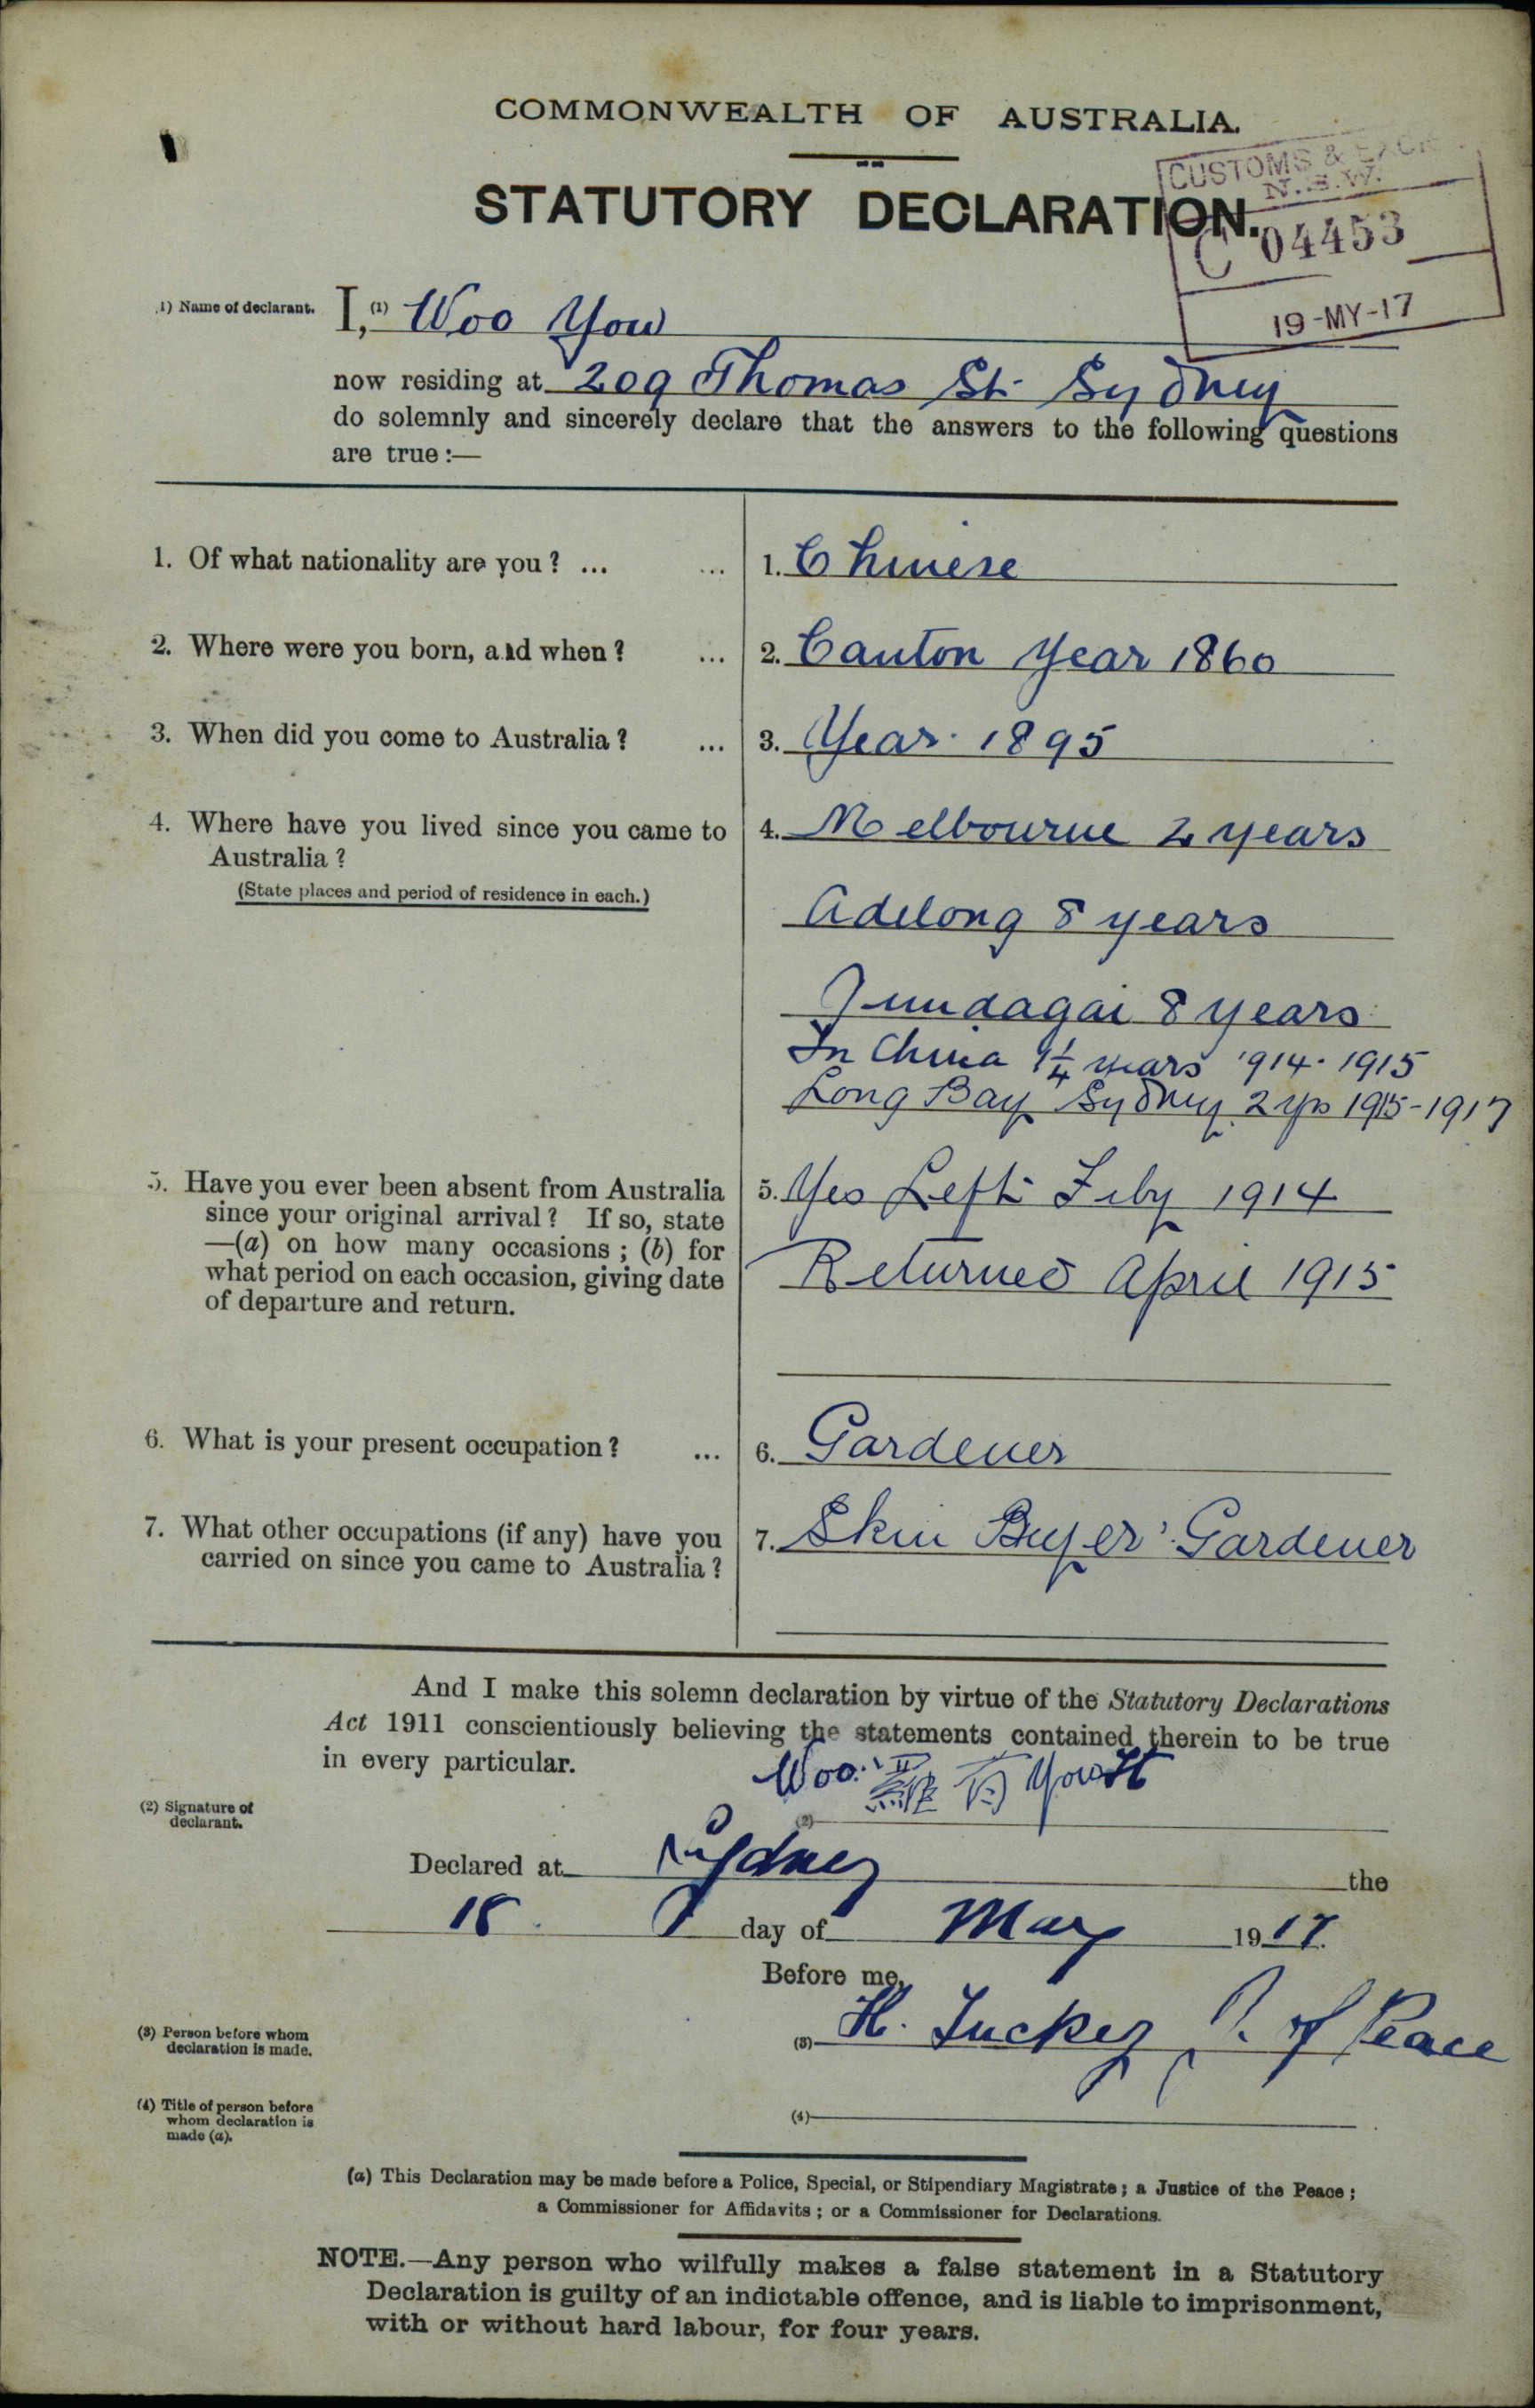 COMMONWEALTH OF AUSTRALIA.
STATUTORY DECLARATION.
CUSTOMS &
N.S.W.
C 04453
19-MY-17
1) Name of declarant.
I, (1) Woo You
now residing at 209 Thomas St. Sydney
do solemnly and sincerely declare that the answers to the following questions
are true:—
1. Of what nationality are you? ... ...
1. Chinese
2. Where were you born, and when? ...
2. Canton Year 1860
3. When did you come to Australia? ...
3. Year 1895
4. Where have you lived since you came to
Australia?
(State places and period of residence in each.)
4. Melbourne 2 years
Adelong 8 years
Gundagai 8 years
In China 1 1/4 years 1914. 1915
Long Bay Sydney 2 yrs 1915-1917
5. Have you ever been absent from Australia
since your original arrival? If so, state
—(a) on how many occasions; (b) for
what period on each occasion, giving date
of departure and return.
5. Yes Left Feby 1914
Returned April 1915
6. What is your present occupation? ...
6. Gardener
7. What other occupations (if any) have you
carried on since you came to Australia?
7. Skin Buyer Gardener
And I make this solemn declaration by virtue of the Statutory Declarations
Act 1911 conscientiously believing the statements contained therein to be true
in every particular.
Woo 羅有 You
(2) Signature of
declarant.
(2)
Declared at Sydney the
18 day of May 1917.
Before me,
(3) Person before whom
declaration is made.
(3) H. Tucker J. of Peace
(4) Title of person before
whom declaration is
made (a).
(4)
(a) This Declaration may be made before a Police, Special, or Stipendiary Magistrate; a Justice of the Peace;
a Commissioner for Affidavits; or a Commissioner for Declarations.
NOTE.—Any person who wilfully makes a false statement in a Statutory
Declaration is guilty of an indictable offence, and is liable to imprisonment,
with or without hard labour, for four years.